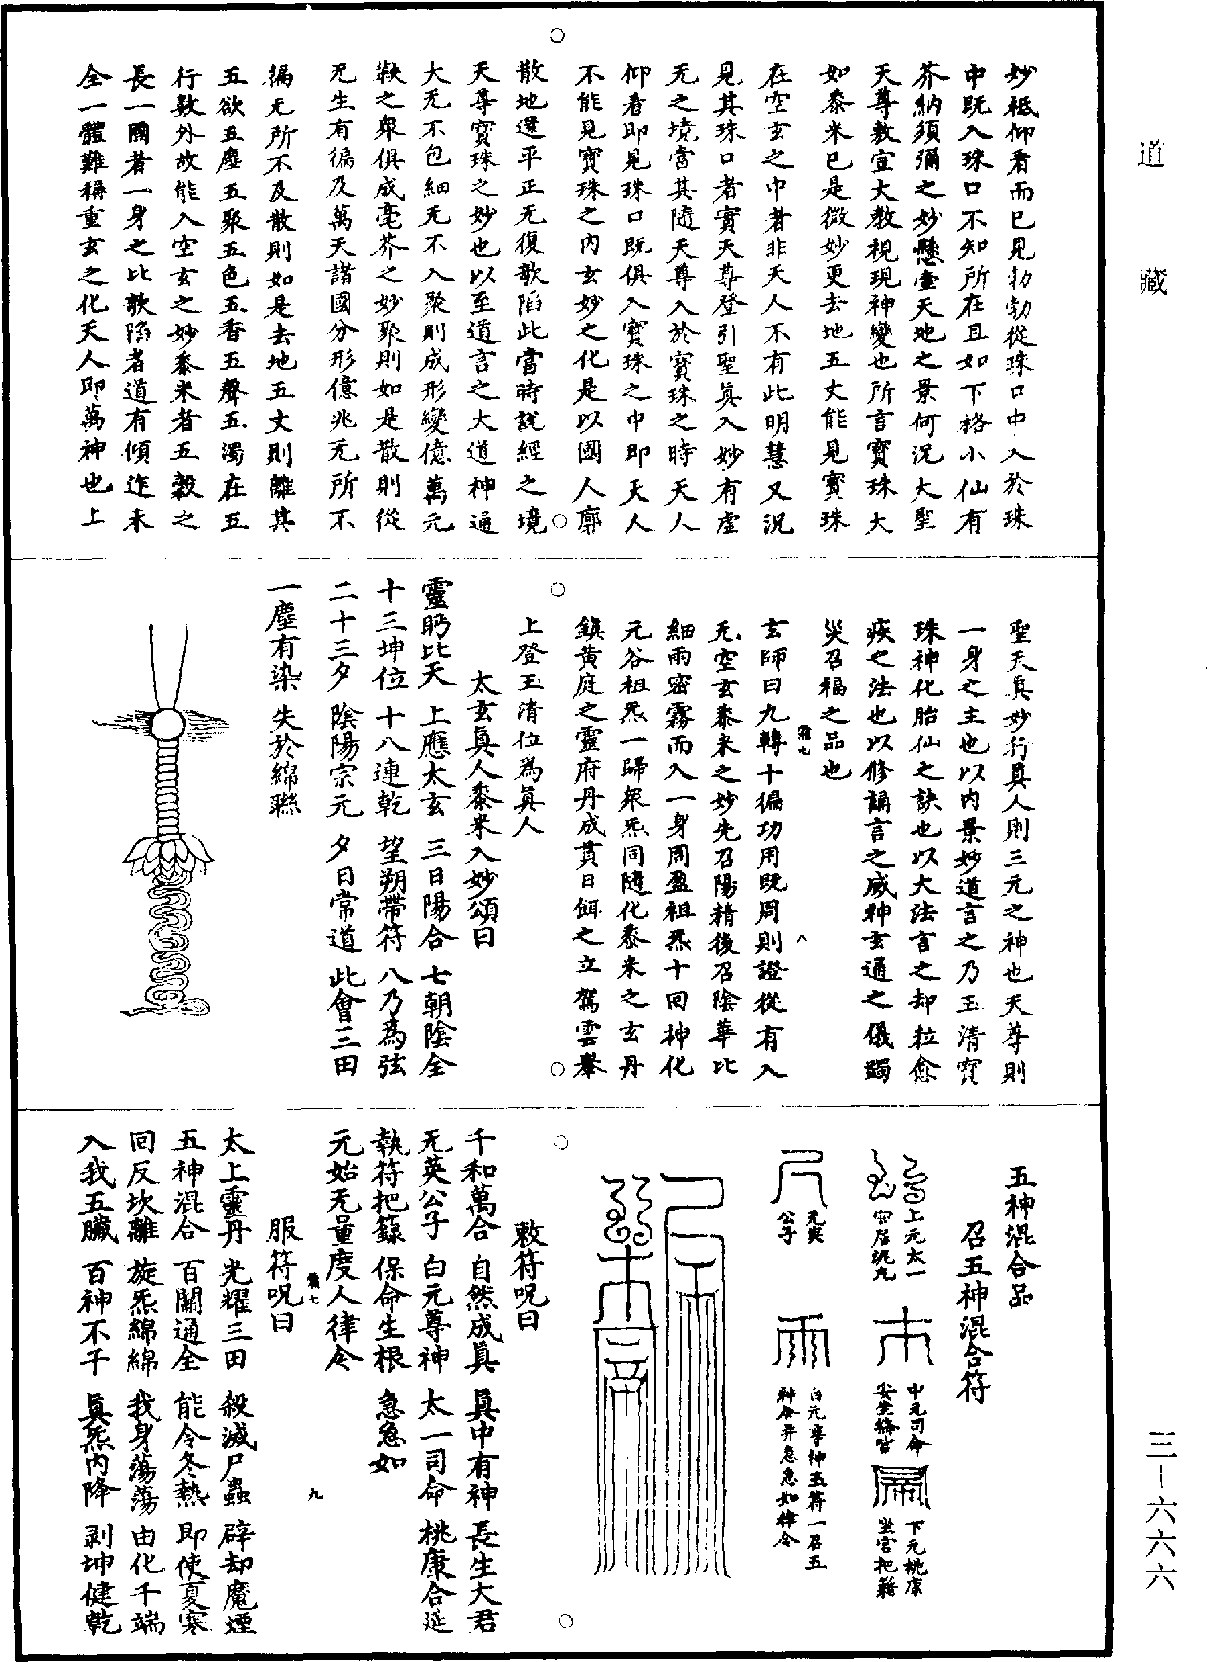 道藏
妙祗仰看而已見勃勃從珠口中入於珠
中既入珠口不知所在且如下格小仙有
芥納須彌之妙懸壺天地之景何況大聖
天尊敷宣大教視現神變也所言寶珠大
如黍米已是微妙更去地五丈能見寶珠
在空玄之中者非天人不有此明慧又況
見其珠口者實天尊登引聖真入妙有虛
无之境當其隨天尊入於寶珠之時天人
仰看即見珠口既俱入寶珠之中即天人
不能見寶珠之內玄妙之化是以國人廓
散地還平正无復欹陷此當時說經之境
天尊寶珠之妙也以至道言之大道神通
大无不包細无不入聚則成形變億萬元
鞅之衆俱成毫芥之妙聚則如是散則從
无生有徧及萬天諸國分形億兆无所不
徧无所不及散則如是去地五丈則離其
五欲五塵五聚五色五香五聲五濁在五
行數外故能入空玄之妙黍米者五穀之
長一國者一身之比欹陷者道有傾迮未
全一體難稱重玄之化天人即萬神也上
聖天真妙行真人則三元之神也天尊則
一身之主也以內景妙道言之乃玉清寶
珠神化胎仙之訣也以大法言之却粒愈
疾之法也以修誦言之威神玄通之儀蠲
災召福之品也
玄師曰九轉十徧功用既周則證從有入
无空玄黍米之妙先召陽精後召陰華比
細雨密霧而入一身周盈祖炁十回神化
元谷祖炁一歸衆炁同隨化黍米之玄丹
鎮黃庭之靈府丹成貫日餌之立駕雲轝
上登玉清位為真人
太玄真人黍米入妙頌曰
靈眄比天 上應太玄 三日陽合 七朝陰全
十三坤位 十八連乾 望朔帶符 八乃為弦
二十三夕 陰陽宗元 夕日常道 此會三田
一塵有染 失於綿聯
五神混合品
召五神混合符
上元太一
中元司命
下元桃康
坐宮把籍
无英
公子
白元尊神玉符一召五
神合昇急急如律令
敕符呪曰
千和萬合 自然成真 真中有神 長生大君
无英公子 白元尊神 太一司命 桃康合延
執符把籙 保命生根 急急如
元始无量度人律令
服符呪曰
太上靈丹 光耀三田 殺滅尸蟲 辟却魔煙
五神混合 百關通全 能令冬熱 即使夏寒
回反坎離 旋炁綿綿 我身蕩蕩 由化千端
入我五臟 百神不干 真炁內降 剥坤健乾
九
三-六六六